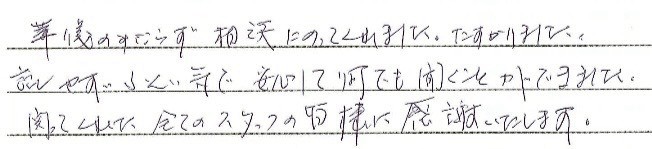 葬儀のみならず 相談にのってくれました。たすかりました。
話しやすいふんい気で 安心して何でも聞くことができました。
関ってくれた 全てのスタッフの皆様に感謝いたします。